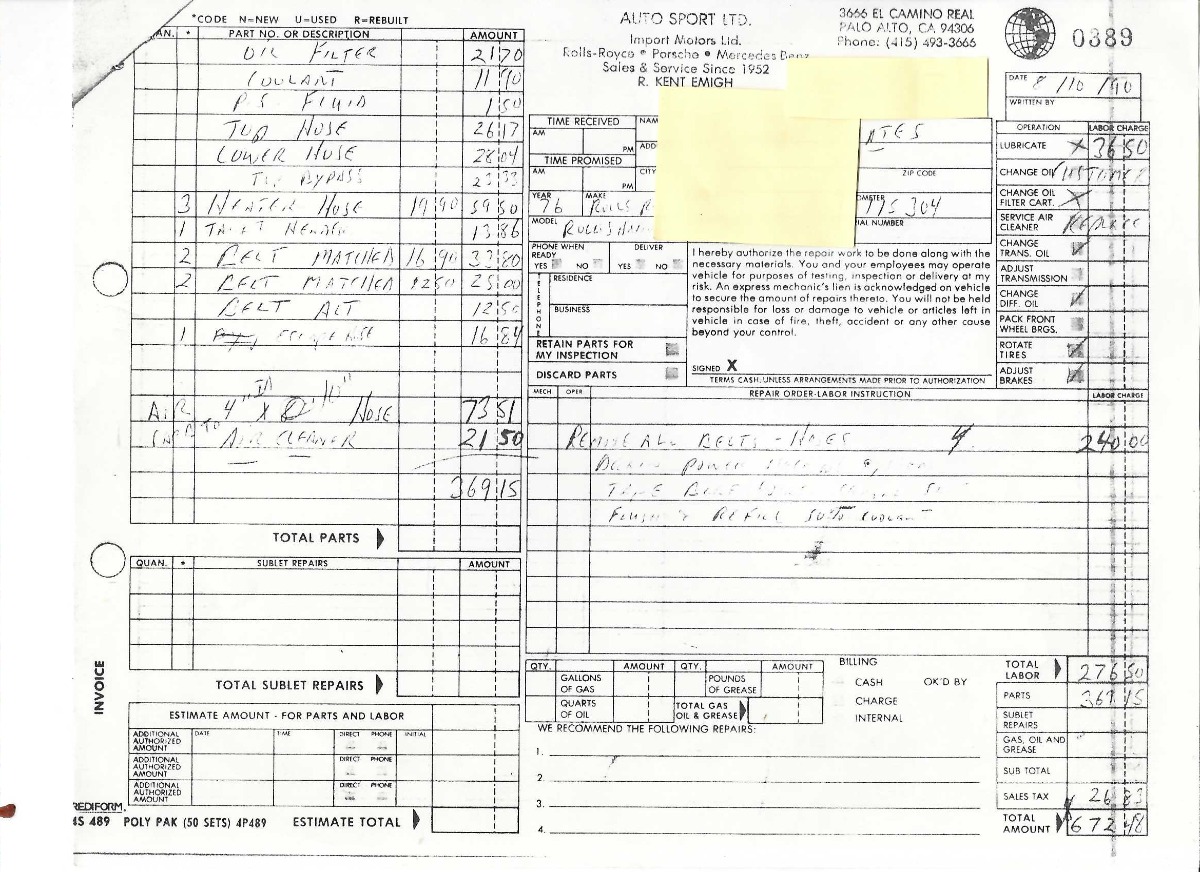 *CODE N=NEW U=USED R=REBUILT
AN. * PART NO. OR DESCRIPTION AMOUNT
OIL FILTER 21 70
COOLANT 11 90
P.S. FLUID 1 50
TOP HOSE 26 17
LOWER HOSE 28 04
BYPASS 23 33
3 HEATER HOSE 19 90 59 50
1 13 86
2 BELT MATCHED 16 90 33 80
2 BELT MATCHED 1250 25 00
BELT ALT 12 50
1 HOSE 16 84
AIR 4" ID X 10" HOSE 73 51
TO AIR CLEANER 21 50
369 15
TOTAL PARTS
QUAN. * SUBLET REPAIRS AMOUNT
TOTAL SUBLET REPAIRS
INVOICE
ESTIMATE AMOUNT - FOR PARTS AND LABOR
ADDITIONAL AUTHORIZED AMOUNT DATE TIME DIRECT PHONE INITIAL
ADDITIONAL AUTHORIZED AMOUNT DIRECT PHONE
ADDITIONAL AUTHORIZED AMOUNT DIRECT PHONE
REDIFORM.
4S 489 POLY PAK (50 SETS) 4P489 ESTIMATE TOTAL
AUTO SPORT LTD.
Import Motors Ltd.
Rolls-Royce • Porsche • Mercedes Benz
Sales & Service Since 1952
R. KENT EMIGH
3666 EL CAMINO REAL
PALO ALTO, CA 94306
Phone: (415) 493-3665
0389
DATE 8/10/90
WRITTEN BY
TIME RECEIVED NAM
AM
PM ADD
TIME PROMISED
AM CITY
PM
ATES
ZIP CODE
YEAR 76 MAKE ROLLS R
OMETER 115304
MODEL ROLLS
IAL NUMBER
PHONE WHEN READY YES NO
DELIVER YES NO
TELEPHONE
RESIDENCE
BUSINESS
RETAIN PARTS FOR MY INSPECTION
DISCARD PARTS
I hereby authorize the repair work to be done along with the
necessary materials. You and your employees may operate
vehicle for purposes of testing, inspection or delivery at my
risk. An express mechanic's lien is acknowledged on vehicle
to secure the amount of repairs thereto. You will not be held
responsible for loss or damage to vehicle or articles left in
vehicle in case of fire, theft, accident or any other cause
beyond your control.
SIGNED X
TERMS CASH, UNLESS ARRANGEMENTS MADE PRIOR TO AUTHORIZATION
OPERATION LABOR CHARGE
LUBRICATE X 36 50
CHANGE OIL
CHANGE OIL FILTER CART. X
SERVICE AIR CLEANER REPLACE
CHANGE TRANS. OIL
ADJUST TRANSMISSION
CHANGE DIFF. OIL
PACK FRONT WHEEL BRGS.
ROTATE TIRES
ADJUST BRAKES
MECH OPER REPAIR ORDER-LABOR INSTRUCTION LABOR CHARGE
REMOVE ALL BELTS - HOSES 4. 240 00
POWER
FLUSH & REFILL COOLANT
QTY. AMOUNT QTY. AMOUNT
GALLONS OF GAS POUNDS OF GREASE
QUARTS OF OIL TOTAL GAS OIL & GREASE
BILLING
CASH OK'D BY
CHARGE
INTERNAL
WE RECOMMEND THE FOLLOWING REPAIRS:
1.
2.
3.
4.
TOTAL LABOR 276 50
PARTS 369 15
SUBLET REPAIRS
GAS, OIL AND GREASE
SUB TOTAL
SALES TAX 26 83
TOTAL AMOUNT 672 48